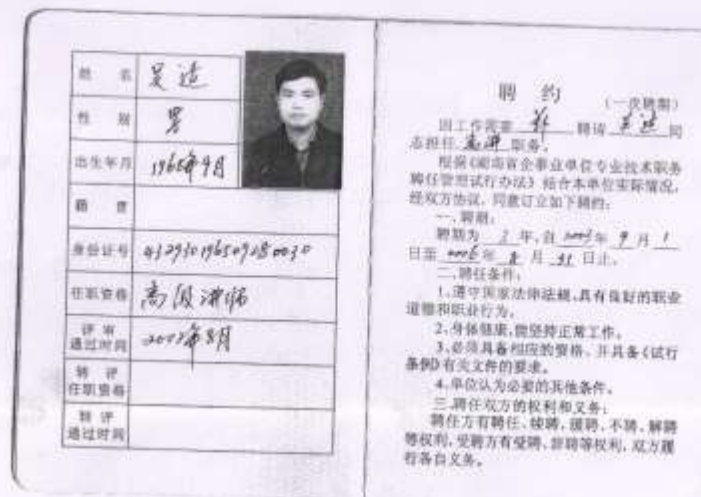 姓 名 吴 适
性 别 男
出生年月 1965年9月
籍 贯
身份证号 432930196509280030
任职资格 高级讲师
评 审
通过时间 2003年8月
转 评
任职资格
转 评
通过时间
聘 约
(一次聘期)
因工作需要 聘请 吴适 同
志担任 高讲 职务。
根据《湖南省企事业单位专业技术职务
聘任管理试行办法》结合本单位实际情况,
经双方协议,同意订立如下聘约:
一、聘期:
聘期为 3 年,自 2003 年 9 月 1
日至 2006 年 8 月 31 日止。
二、聘任条件:
1、遵守国家法律法规,具有良好的职业
道德和职业行为。
2、身体健康,能坚持正常工作。
3、必须具备相应的资格、并具备《试行
条例》有关文件的要求。
4、单位认为必要的其他条件。
三、聘任双方的权利和义务:
聘任方有聘任、续聘、缓聘、不聘、解聘
等权利,受聘方有受聘、辞聘等权利,双方履
行各自义务。